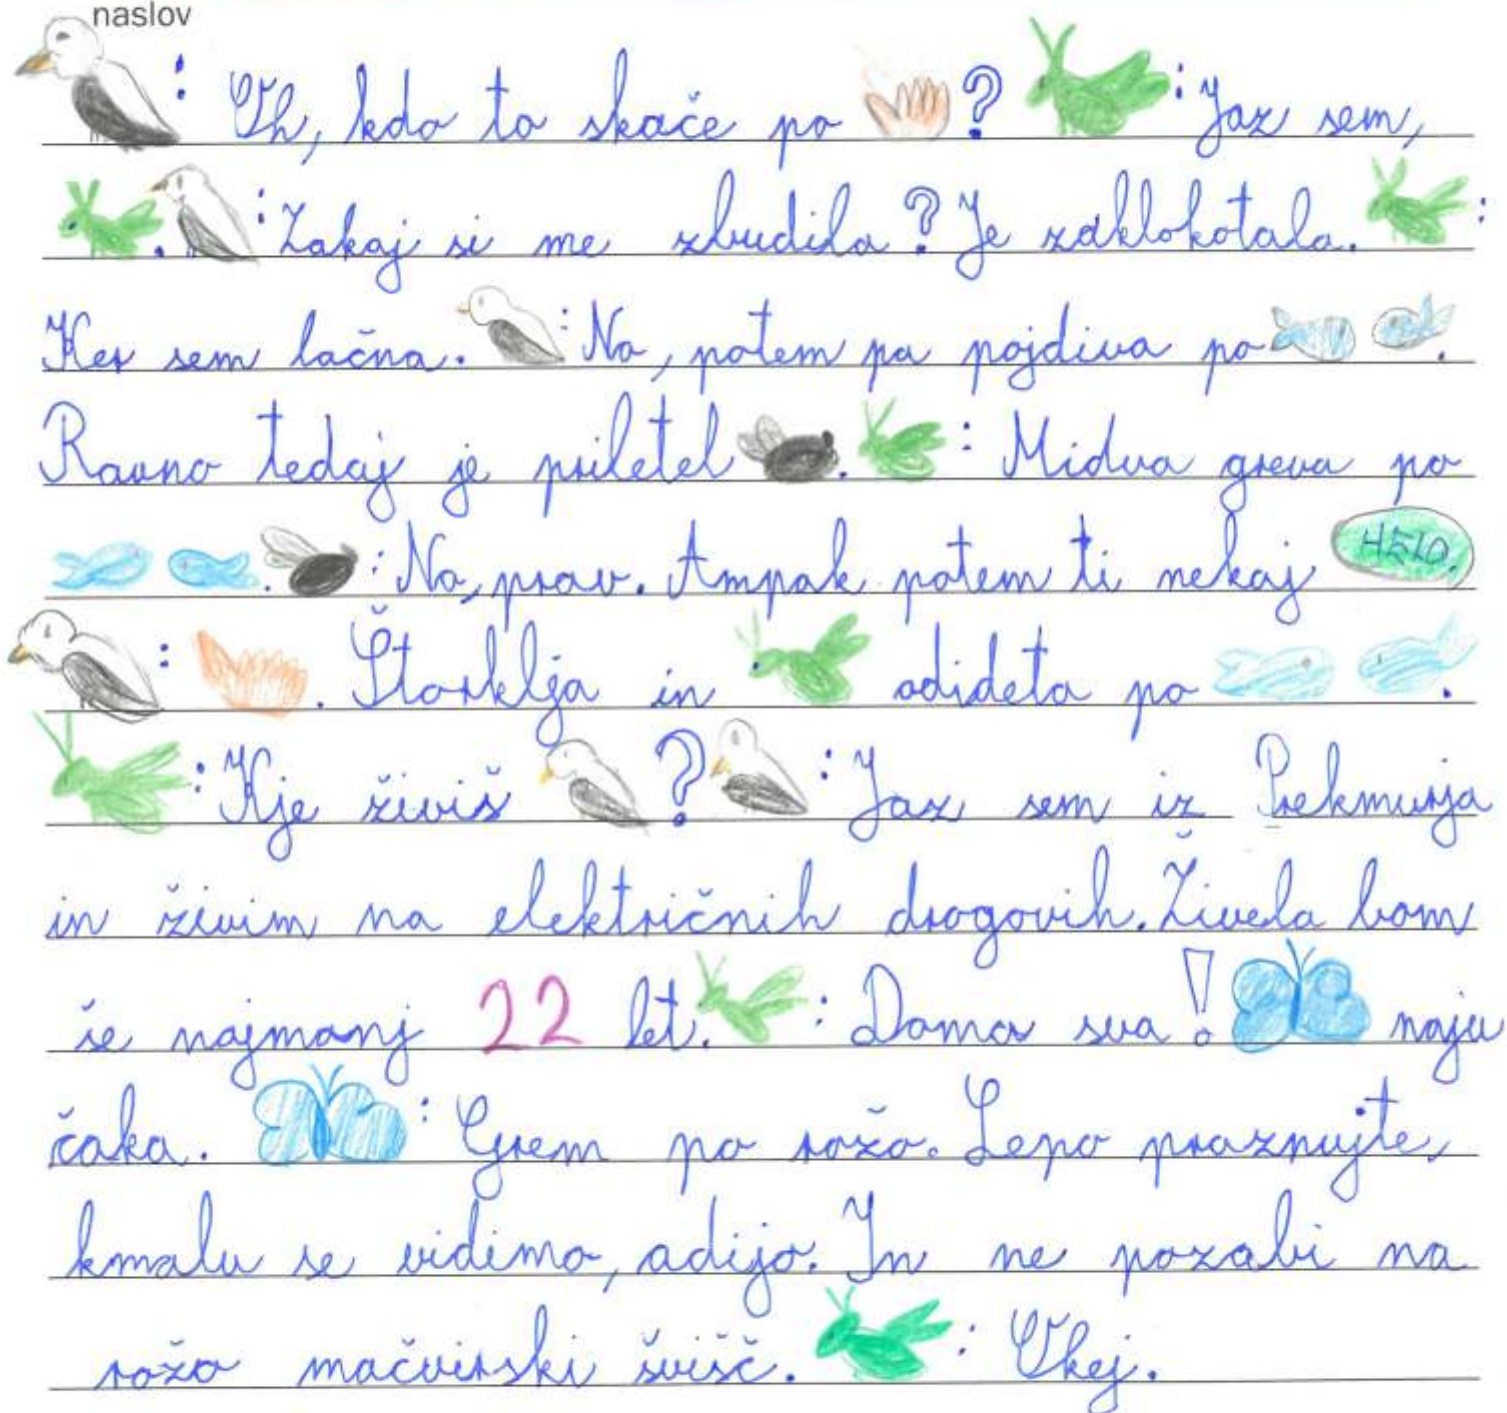 naslov
: Oh, kdo to skače po ? : Jaz sem,
. : Zakaj si me zbudila? Je zaklokotala. :
Ker sem lačna. : No, potem pa pojdiva po .
Ravno tedaj je priletel . : Midva greva po
. : No, prav. Ampak potem ti nekaj HELO.
: . Štorklja in odideta po .
: Kje živiš ? : Jaz sem iz Prekmurja
in živim na električnih drogovih. Živela bom
še najmanj 22 let. : Doma sva! naju
čaka. : Grem po rožo. Lepo praznujte,
kmalu se vidimo, adijo. In ne pozabi na
rožo močvirski svišč. : Okej.